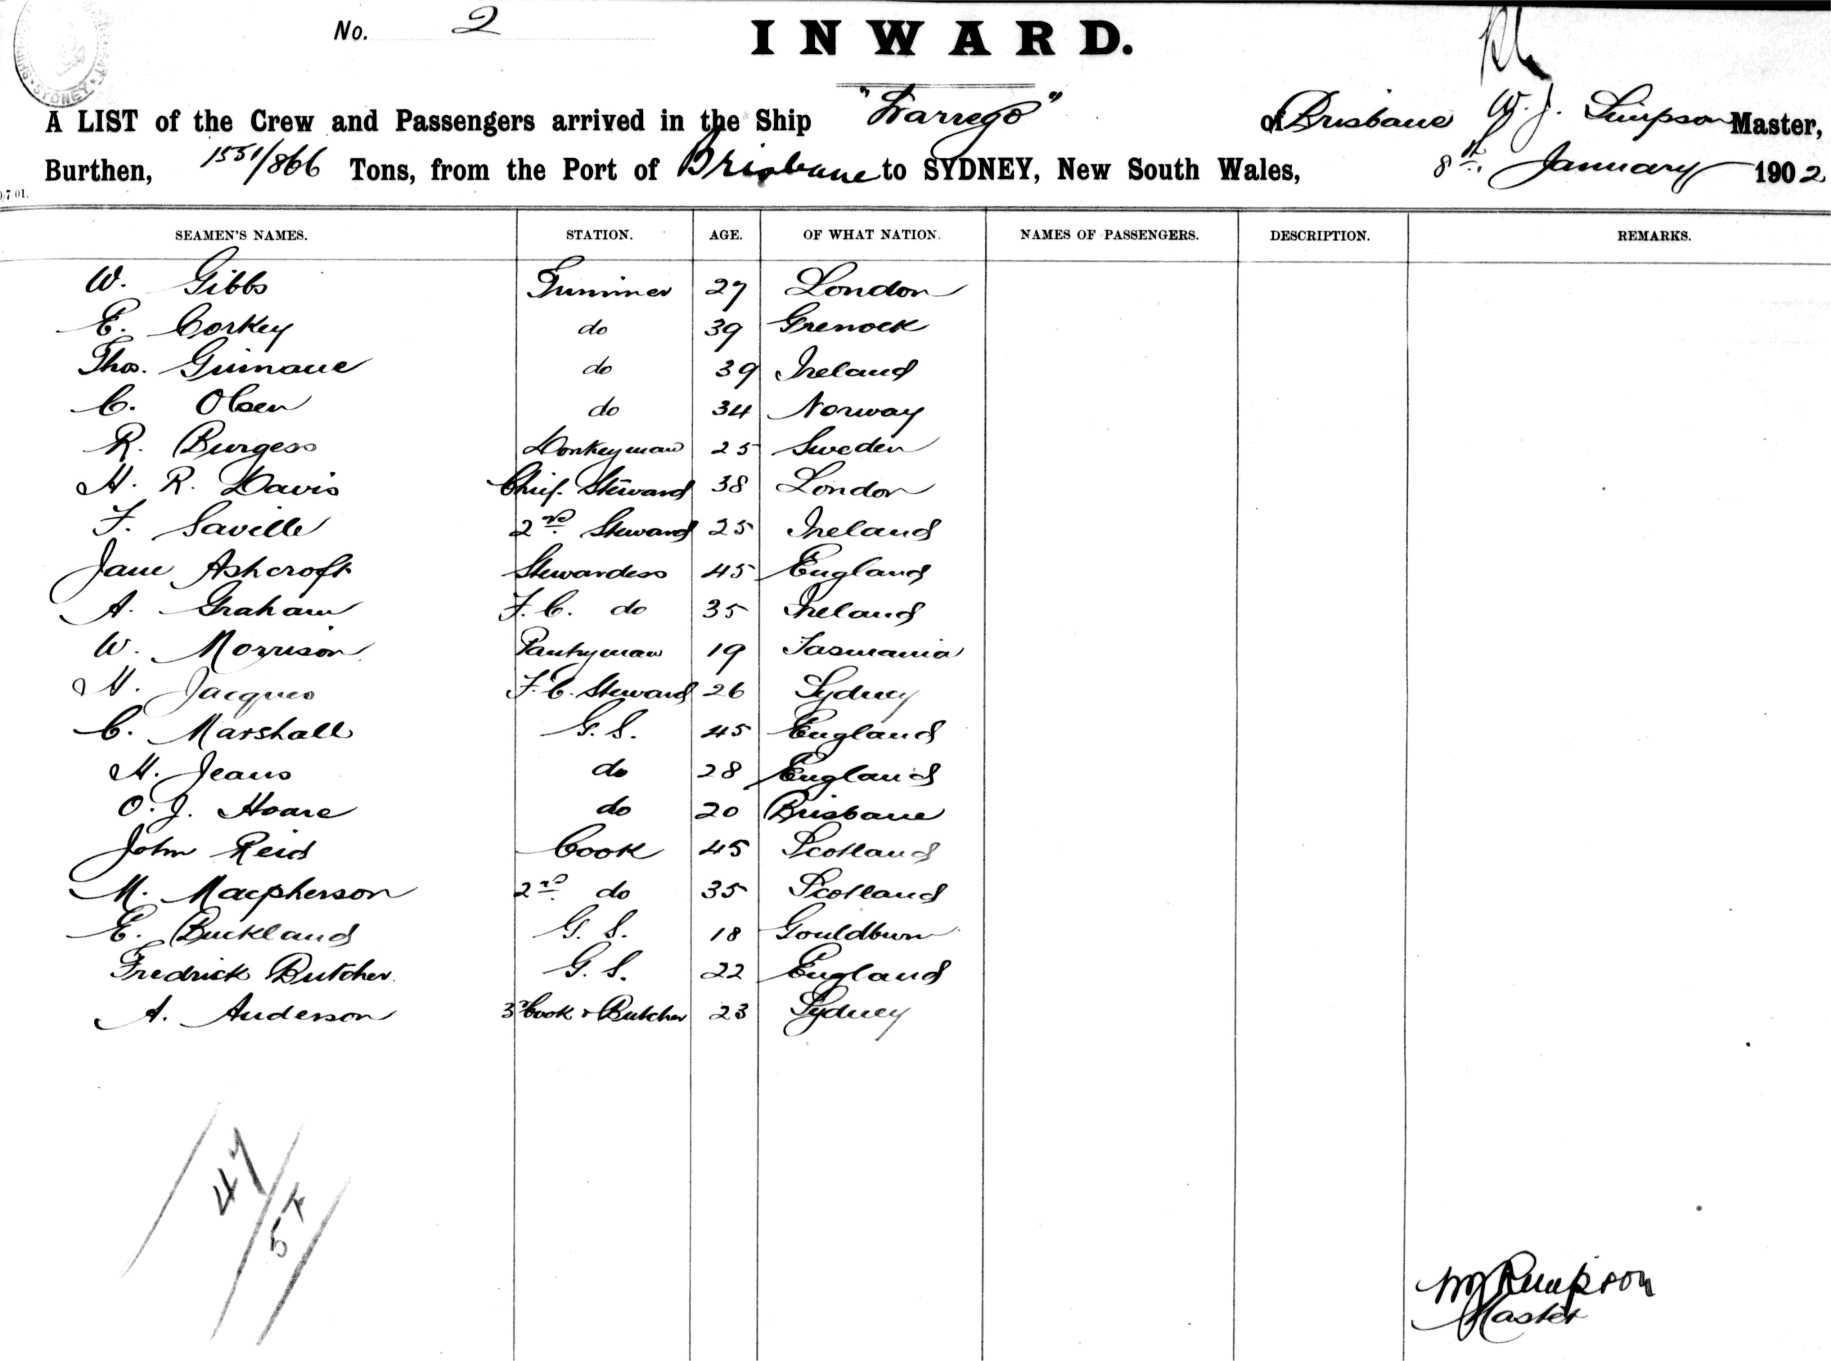 No. 2
INWARD.
A LIST of the Crew and Passengers arrived in the Ship "Warrego" of Brisbane W. J. Simpson Master,
Burthen, 1551/866 Tons, from the Port of Brisbane to SYDNEY, New South Wales, 8th January 1902
SEAMEN'S NAMES. STATION. AGE. OF WHAT NATION. NAMES OF PASSENGERS. DESCRIPTION. REMARKS.
W. Gibbs Trimmer 27 London
E. Corkey do 39 Grenock
Thos. Guinane do 39 Ireland
C. Olsen do 34 Norway
R. Burgess Donkeyman 25 Sweden
H. R. Davis Chief Steward 38 London
F. Saville 2nd Steward 25 Ireland
Jane Ashcroft Stewardess 45 England
A. Graham F. C. do 35 Ireland
W. Morrison Pantryman 19 Tasmania
H. Jacques F. C. Steward 26 Sydney
C. Marshall G. S. 45 England
H. Jeans do 28 England
O. J. Hoare do 20 Brisbane
John Reid Cook 45 Scotland
M. Macpherson 2nd do 35 Scotland
E. Buckland G. S. 18 Gouldburn
Fredrick Butcher. G. S. 22 England
A. Anderson 3rd Cook & Butcher 23 Sydney
47
54
W J Simpson
Master